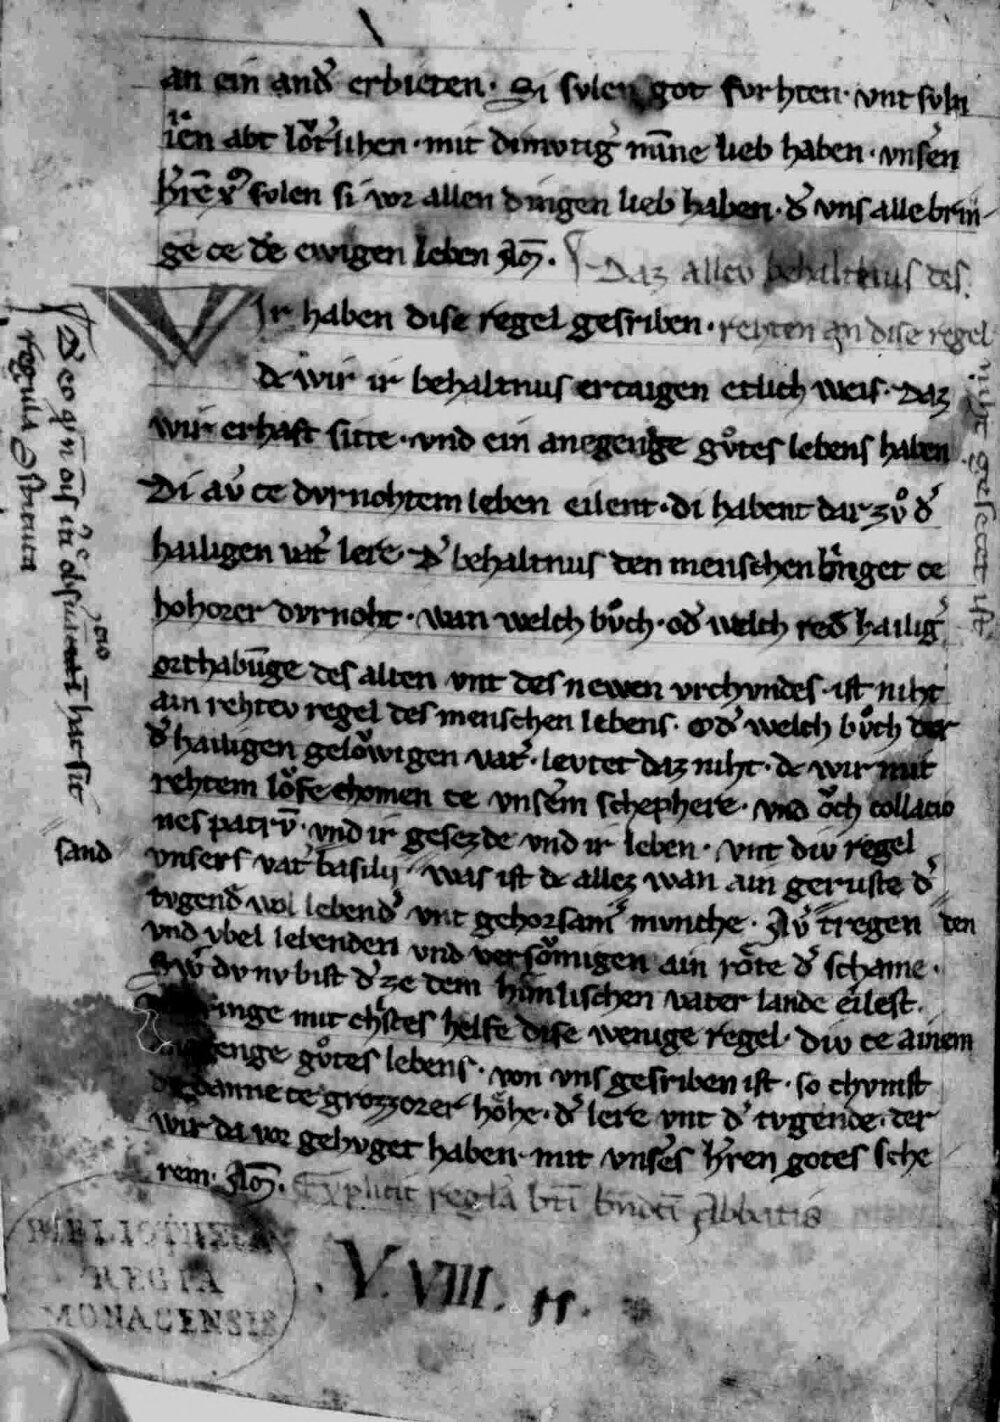 an ein and͛ erbieten · Si svlen got furhten · vnt svln
irn abt lot͛lihen · mit dimvtig͛ mīne lieb haben · vnsen
h͛rē xp̄o svlen si vor allen dingen lieb haben · d͛ vns alle brin-
ge ce dē ewigen leben Am̄. Daz allev behaltnus des
Wir haben dise regel gesriben · rehten an dise regel
niht gesetzet ist
de wir ir behaltnus ertaigen etlich weis · daz
wir erhaft sitte · vnd ein anegenge gvͦtes lebens haben
Di av̄ ce dvrnohtem leben eilent · di habent darzvͦ d͛
hailigen vat͛ lere · D͛ behaltnus den menschen bringet ce
hohorer dvrnoht · wan welch bvͦch · od͛ welch red͛ hailig͛
orthabūge des alten vnt des newen vrchvndes · ist niht
ain rehtev regel des menschen lebens · Od͛ welch bvͦch der
d͛ hailigen gelovͦwigen vat͛ · levtet daz niht · de wir mit
rehtem lovͦfe chomen ce vnserm schephere · vnd ovͦch collacio
nes patrv̄ · vnd ir gesezde vnd ir leben · vnt div regel
vnsers vat͛ basilij was ist de allez wan ain geruste d͛
sand
tvgend͛ wol lebend͛ vnt gehorsam͛ mvnche · Av̄ tregen den
vnd vbel lebenden vnd versovͦmigen ain rote d͛ schame ·
Swͦ dv nv bist d͛ ze dem himlischen vater lande eilest ·
ringe mit ch͛istes helfe dise wenige regel · div ce ainem
genge gvͦtes lebens · von vns gesriben ist · so chvmst
danne ce grozzorer höhe · d͛ lere vnt d͛ tvgende · der
wir da vor gehvget haben · mit vnsers h͛ren gotes sche
rem · Am̄. Explicit regla bt̄i bn̄dc̄i Abbatis
De eo qͥ n̄ oīs
regula
BIBLIOTHECA
REGIA
MONACENSIS
. V. VIII. ss.